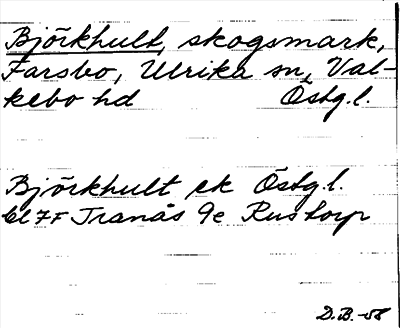 Björkhult, skogsmark,
Farsbo, Ulrika sn, Val-
kebo hd Östg.l.
Björkhult ek Östg.l.
bl 7F Tranås 9e Rustorp
D.B.-58